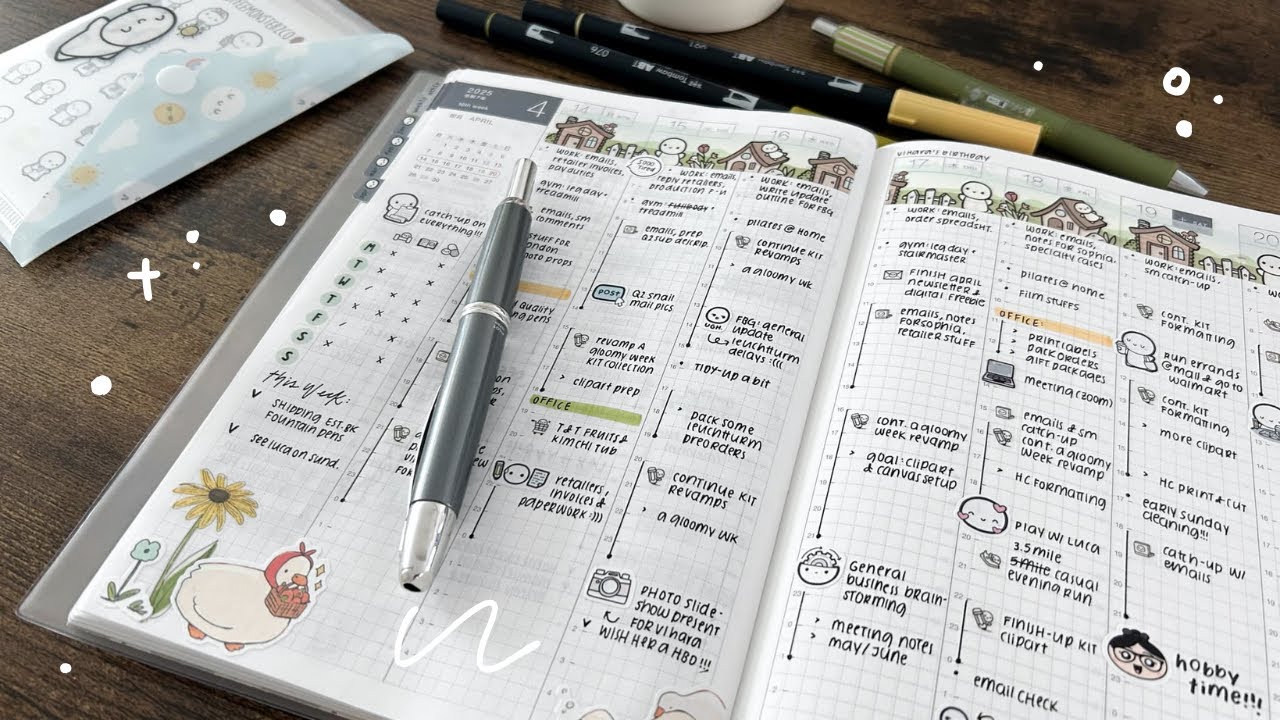 2025
4
APRIL
catch-up on
everything!!!
M
T
W
T
F
S
S
this week:
SHIPPING EST. BK
FOUNTAIN PENS
see luca on sund.
14
WORK: emails,
retailer invoices,
pay duties
gym: leg day +
treadmill
emails, sm
comments
STUFF FOR
PHOTO PROPS
15
WORK: email,
reply retailers,
gym: fullbody +
treadmill
emails, prep
POST
Q2 snail
mail pics
revamp a
gloomy week
kit collection
clipart prep
OFFICE
T&T FRUITS &
KIMCHI TUB
retailers,
invoices &
paperwork :)))
16
WORK: emails,
write update
outline for FBG
pilates @ home
continue kit
revamps
a gloomy wk
UGH.
FBG: general
update
leuchtturm
delays :(((
TIDY-UP a bit
pack some
leuchtturm
preorders
continue kit
revamps
a gloomy wk
PHOTO SLIDE-
SHOW PRESENT
FOR VIHARA
WISH HER A HBD!!!
VIHARA'S BIRTHDAY
17
WORK: emails,
order spreadsht.
gym: leg day +
stairmaster
FINISH APRIL
newsletter &
digital freebie
emails, notes
for sophia,
retailer stuff
cont. a gloomy
week revamp
goal: clipart
& canvas setup
General
business brain-
storming
meeting notes
may/june
18
WORK: emails,
notes for sophia,
specialty cases
pilates @ home
Film stuffs
OFFICE:
print labels
pack orders
gift packages
meeting (zoom)
emails & sm
catch-up
cont. a gloomy
week revamp
HC Formatting
PLAY W/ LUCA
3.5 mile
5 mile casual
evening run
FINISH-UP KIT
clipart
email check
19
WORK: emails,
sm catch-up
cont. kit
formatting
run errands
@ mall & go to
walmart
cont. kit
Formatting
more clipart
HC print & cut
early sunday
cleaning!!!
catch-up w/
emails
hobby
time!!!
20